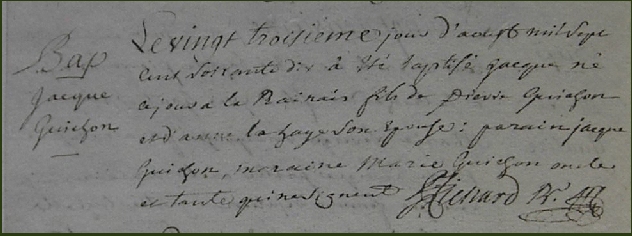 Bap
jacque
Guichon
Le vingt troisieme jour d'aout mil sept
cent soixante dix à été baptisé jacque né
ce jour a la Rairais fils de Pierre Guichon
et d'anne la haye son epouse : parain jacque
Guichon, maraine Marie Guichon oncle
et tante qui ne signent